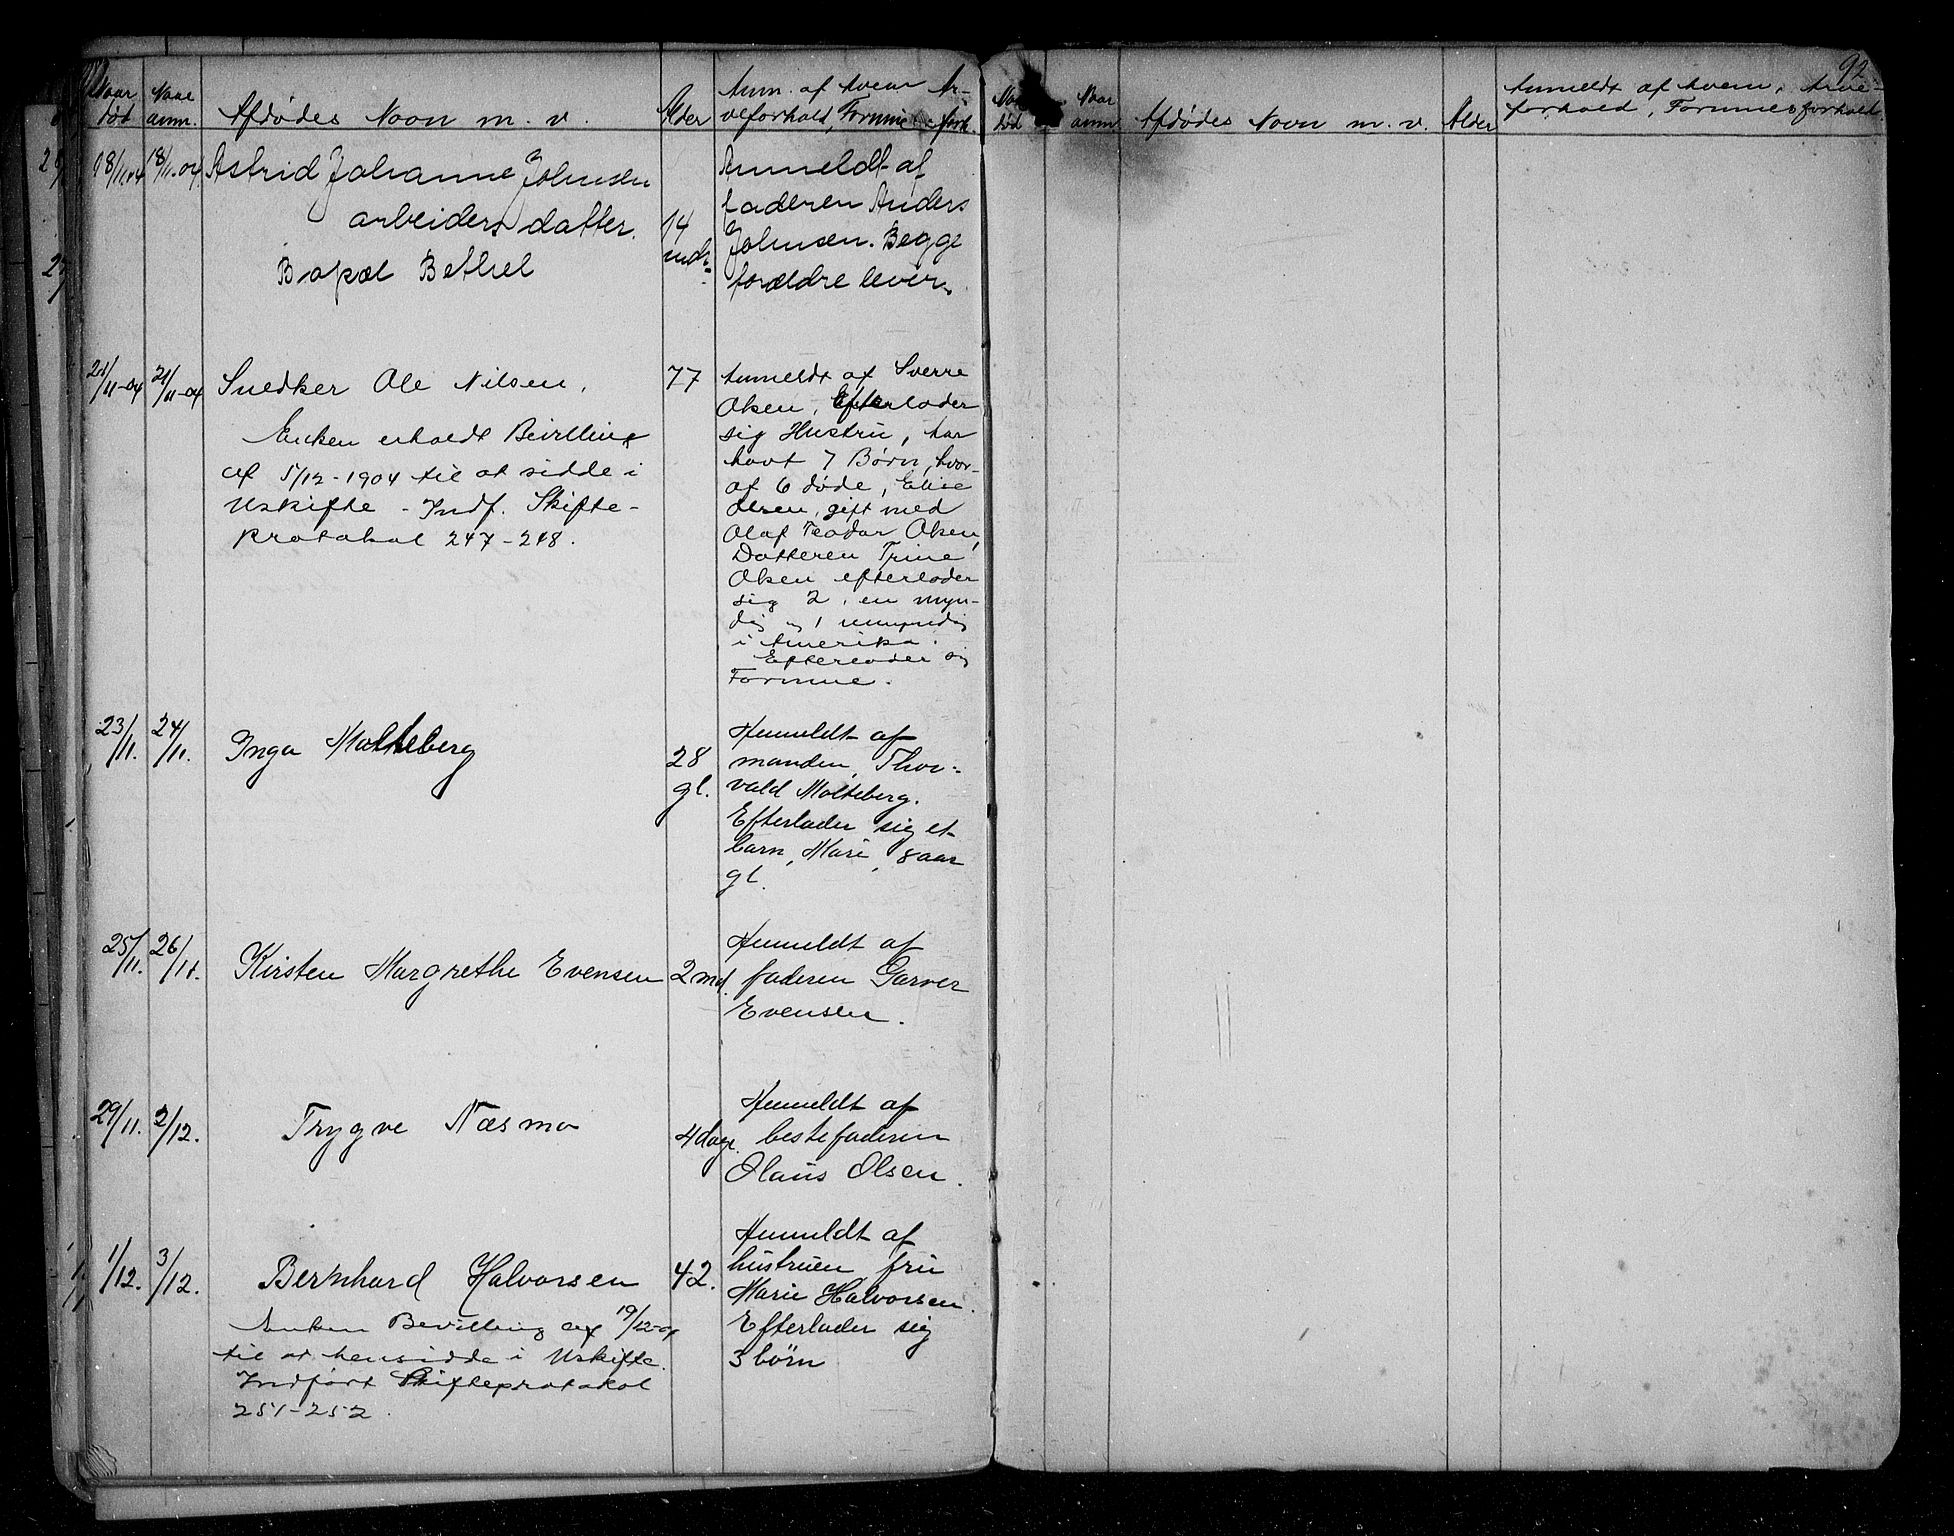 Naar død
Naar anm.
Afdødes Navn m. v.
Alder
Anm. af hvem Ar-
veforhold, Formuesforh.
18/11-04
18/11-04
Astrid Johanne Johnsen
arbeiders datter.
Bopæl Bethel
14
mdr.
Anmeldt af
faderen Anders
Johnsen. Begge
forældre lever.
21/11-04
21/11-04
Snedker Ole Nilsen.
Enken erholdt Bevilling
af 5/12-1904 til at sidde i
Uskifte - Indf. Skifte-
protokol 247-248.
77
Anmeldt af Sverre
Olsen, Efterlader
sig Hustru, har
havt 7 Børn, hvor-
af 6 døde, Elise
Olsen, gift med
Olaf Teodor Olsen,
Datteren Trine
Olsen efterlader
sig 2, en myn-
dig og 1 umyndig
i Amerika.
Efterlader sig
Formue.
23/11.
24/11.
Inga Molteberg
28
gl.
Anmeldt af
manden, Thor-
vald Molteberg.
Efterlader sig et
barn, Mari, 8 aar
gl.
25/11.
26/11.
Kirsten Margrethe Evensen
2 md.
Anmeldt af
faderen Garver
Evensen.
29/11.
2/12.
Trygve Næsmo
4 dage.
Anmeldt af
bestefaderen
Olaus Olsen.
1/12.
3/12.
Bernhard Halvorsen
Enken Bevilling af 19/12-04
til at hensidde i Uskifte.
Indført Skifteprotokol
251-252.
42.
Anmeldt af
hustruen fru
Marie Halvorsen.
Efterlader sig
3 børn
92
død
Naar anm
Afdødes Navn m. v.
Alder
Anmeldt af hvem, Arve-
forhold, Formuesforhold.